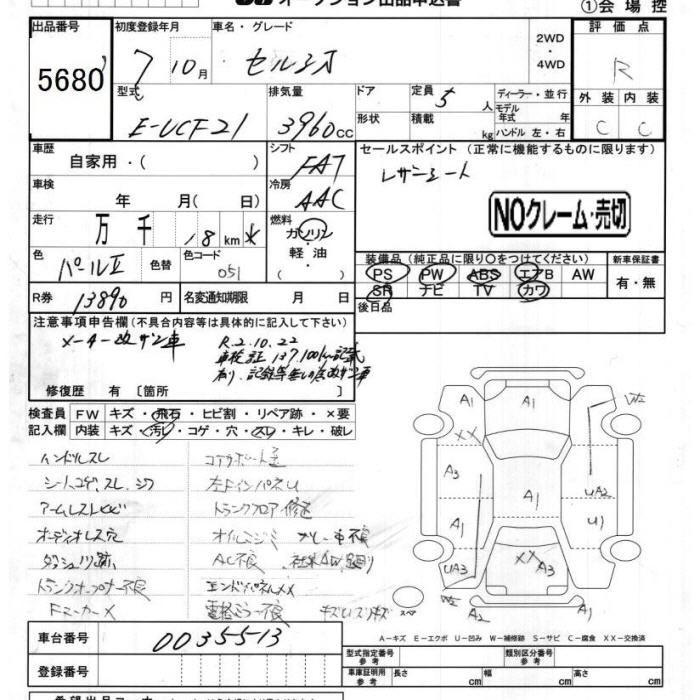 オークション出品申込書
①会場控
出品番号 初度登録年月 車名・グレード 評価点
5680 7 10月 セルシオ 2WD・4WD R
型式 排気量 ドア 定員 ディーラー・並行 外装 内装
E-UCF21 3960cc 形状 積載 5人 kg モデル年式 年 ハンドル 左・右 C C
車歴 シフト セールスポイント (正常に機能するものに限ります)
自家用・( ) FAT レザーシート
車検 冷房
年 月( 日) AAC NOクレーム・売切
走行 燃料
万 千 18 km ガソリン・軽・油・( )
色 色替 色コード 装備品 (純正品に限り○をつけてください) 新車保証書
パールⅡ 051 PS PW ABS エアB AW 有・無
SR ナビ TV カワ
R券 13890円 名変通知期限 月 日 後日品
注意事項申告欄 (不具合内容等は具体的に記入して下さい)
メーター改ザン車 R.2.10.22
車検証 137,100km記載
有り、記録等無しの為改ザン車
修復歴 有 〔箇所 〕
検査員 FW キズ・飛石・ヒビ割・リペア跡・×要
記入欄 内装 キズ・汚レ・コゲ・穴・スレ・キレ・破レ
ハンドルスレ コアサポート歪
シートコゲ、スレ、シワ 左FインパネU
アームレストヒビ トランクフロア修送
オーディオレス穴 オイルニジミ ブレーキ不良
ダッシュツメ跡 AC不良
トランクオープナー不良 エンドパネルXX
Fマーカー× 電格ミラー不良
A1 A1 XX A3 A1 A1 UA2 U1 UA3 XX A3 A2 A1
スペ
A-キズ E-エクボ U-凹み W-補修跡 S-サビ C-腐食 XX-交換済
車台番号 0035513
登録番号
型式指定番号 参考 類別区分番号 参考
車庫証明用 参考 長さ cm 幅 cm 高さ cm
希望出品コーナー